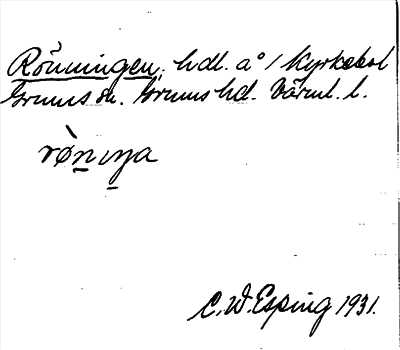 Rönningen, hdl. a° / Kyrkebol
Grums sn. Grums hd. Värml. l.
rø̀nıŋa
C. W. Esping 1931.